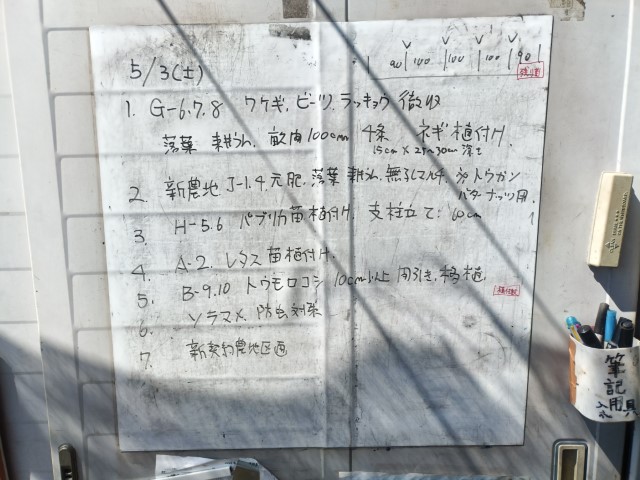 90 100 100 100 90
5/3(土)
1. G-6.7.8 ワケギ、ビーツ、ラッキョウ 徹収
落葉 耕うん、畝肉100cm 4条 ネギ植付け.
15cm × 25~30cm 深さ
2. 新農地 J-1.4 元肥、落葉 耕うん、無孔マルチ、トウガン
バターナッツ用.
3. H-5.6 パプリカ苗植付け、支柱立て: 60cm
4. A-2. レタス苗植付け.
5. B-9.10 トウモロコシ 10cm以上 間引き、移植
6. ソラマメ、防虫対策
7. 新契約農地区画
筆記用具
入れ